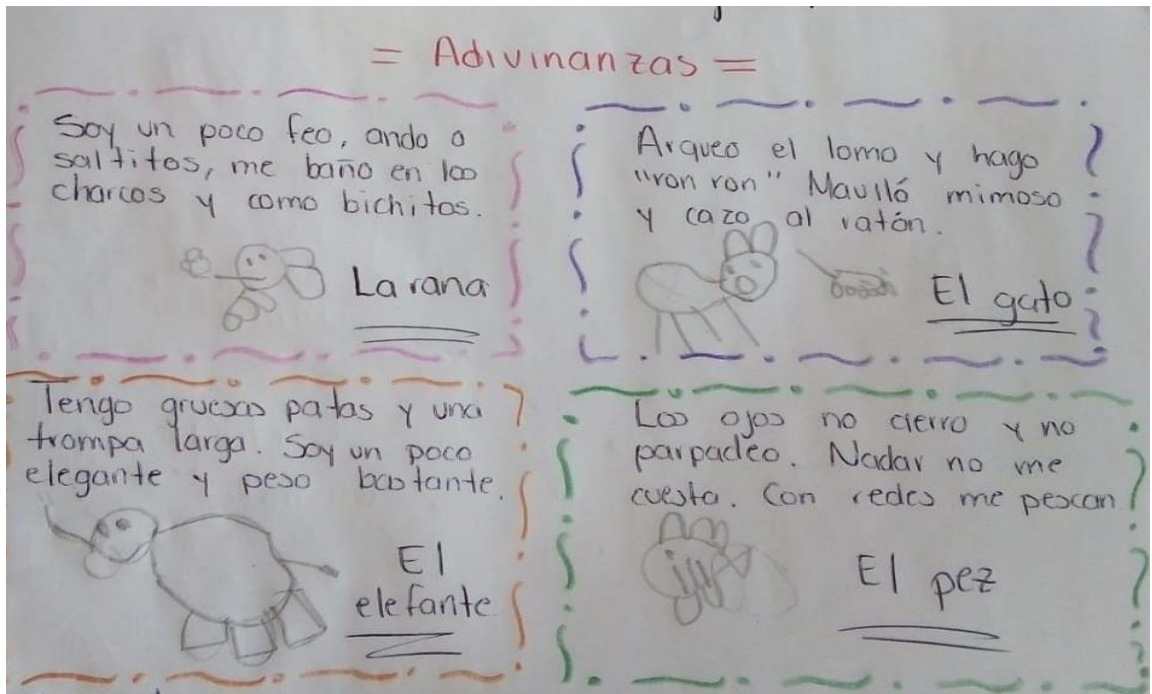 = Adivinanzas =
Soy un poco feo, ando a
saltitos, me baño en los
charcos y como bichitos.
La rana
Arqueo el lomo y hago
"ron ron" Maulló mimoso
y cazo al ratón.
El gato
Tengo gruesas patas y una
trompa larga. Soy un poco
elegante y peso bastante.
El
elefante
Los ojos no cierro y no
parpadeo. Nadar no me
cuesta. Con redes me pescan
El pez